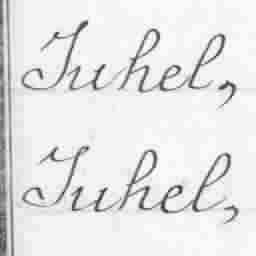 Juhel,
Juhel,